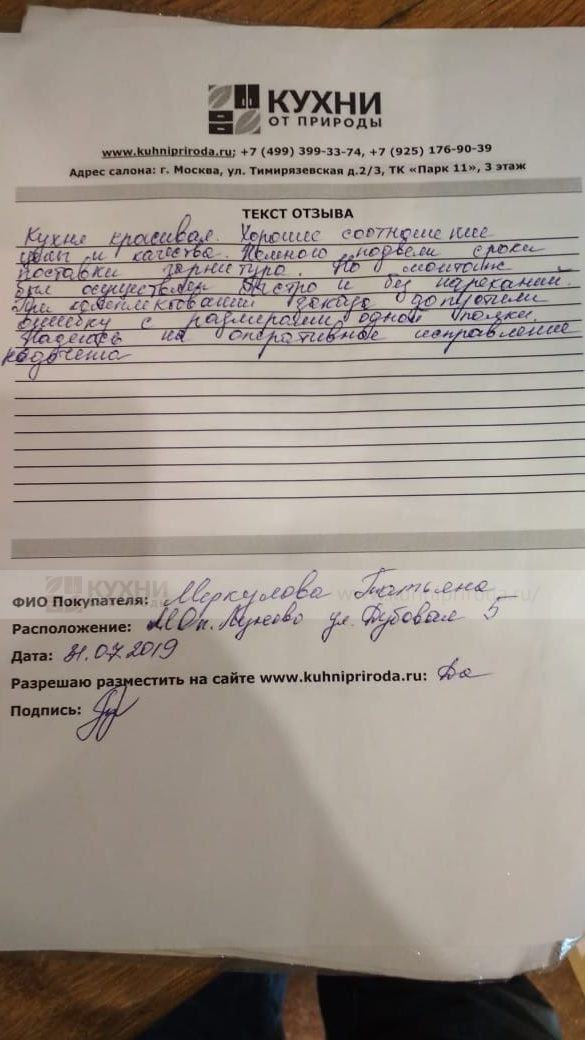 КУХНИ
ОТ ПРИРОДЫ
www.kuhnipriroda.ru; +7 (499) 399-33-74, +7 (925) 176-90-39
Адрес салона: г. Москва, ул. Тимирязевская д.2/3, ТК «Парк 11», 3 этаж
ТЕКСТ ОТЗЫВА
Кухня красивая. Хорошее соотношение
цены и качества. Немного подвели сроки
поставки гарнитура. Но монтаж
был осуществлен быстро и без нареканий.
При комплектовании заказа допустили
ошибку с размерами одной полки.
Надеюсь на оперативное исправление
недочета
КУХНИ
ФИО Покупателя: Меркулова Татьяна
Расположение: МО п. ул. Дубовая 5
Дата: 31.07.2019
Разрешаю разместить на сайте www.kuhnipriroda.ru: Да
Подпись: